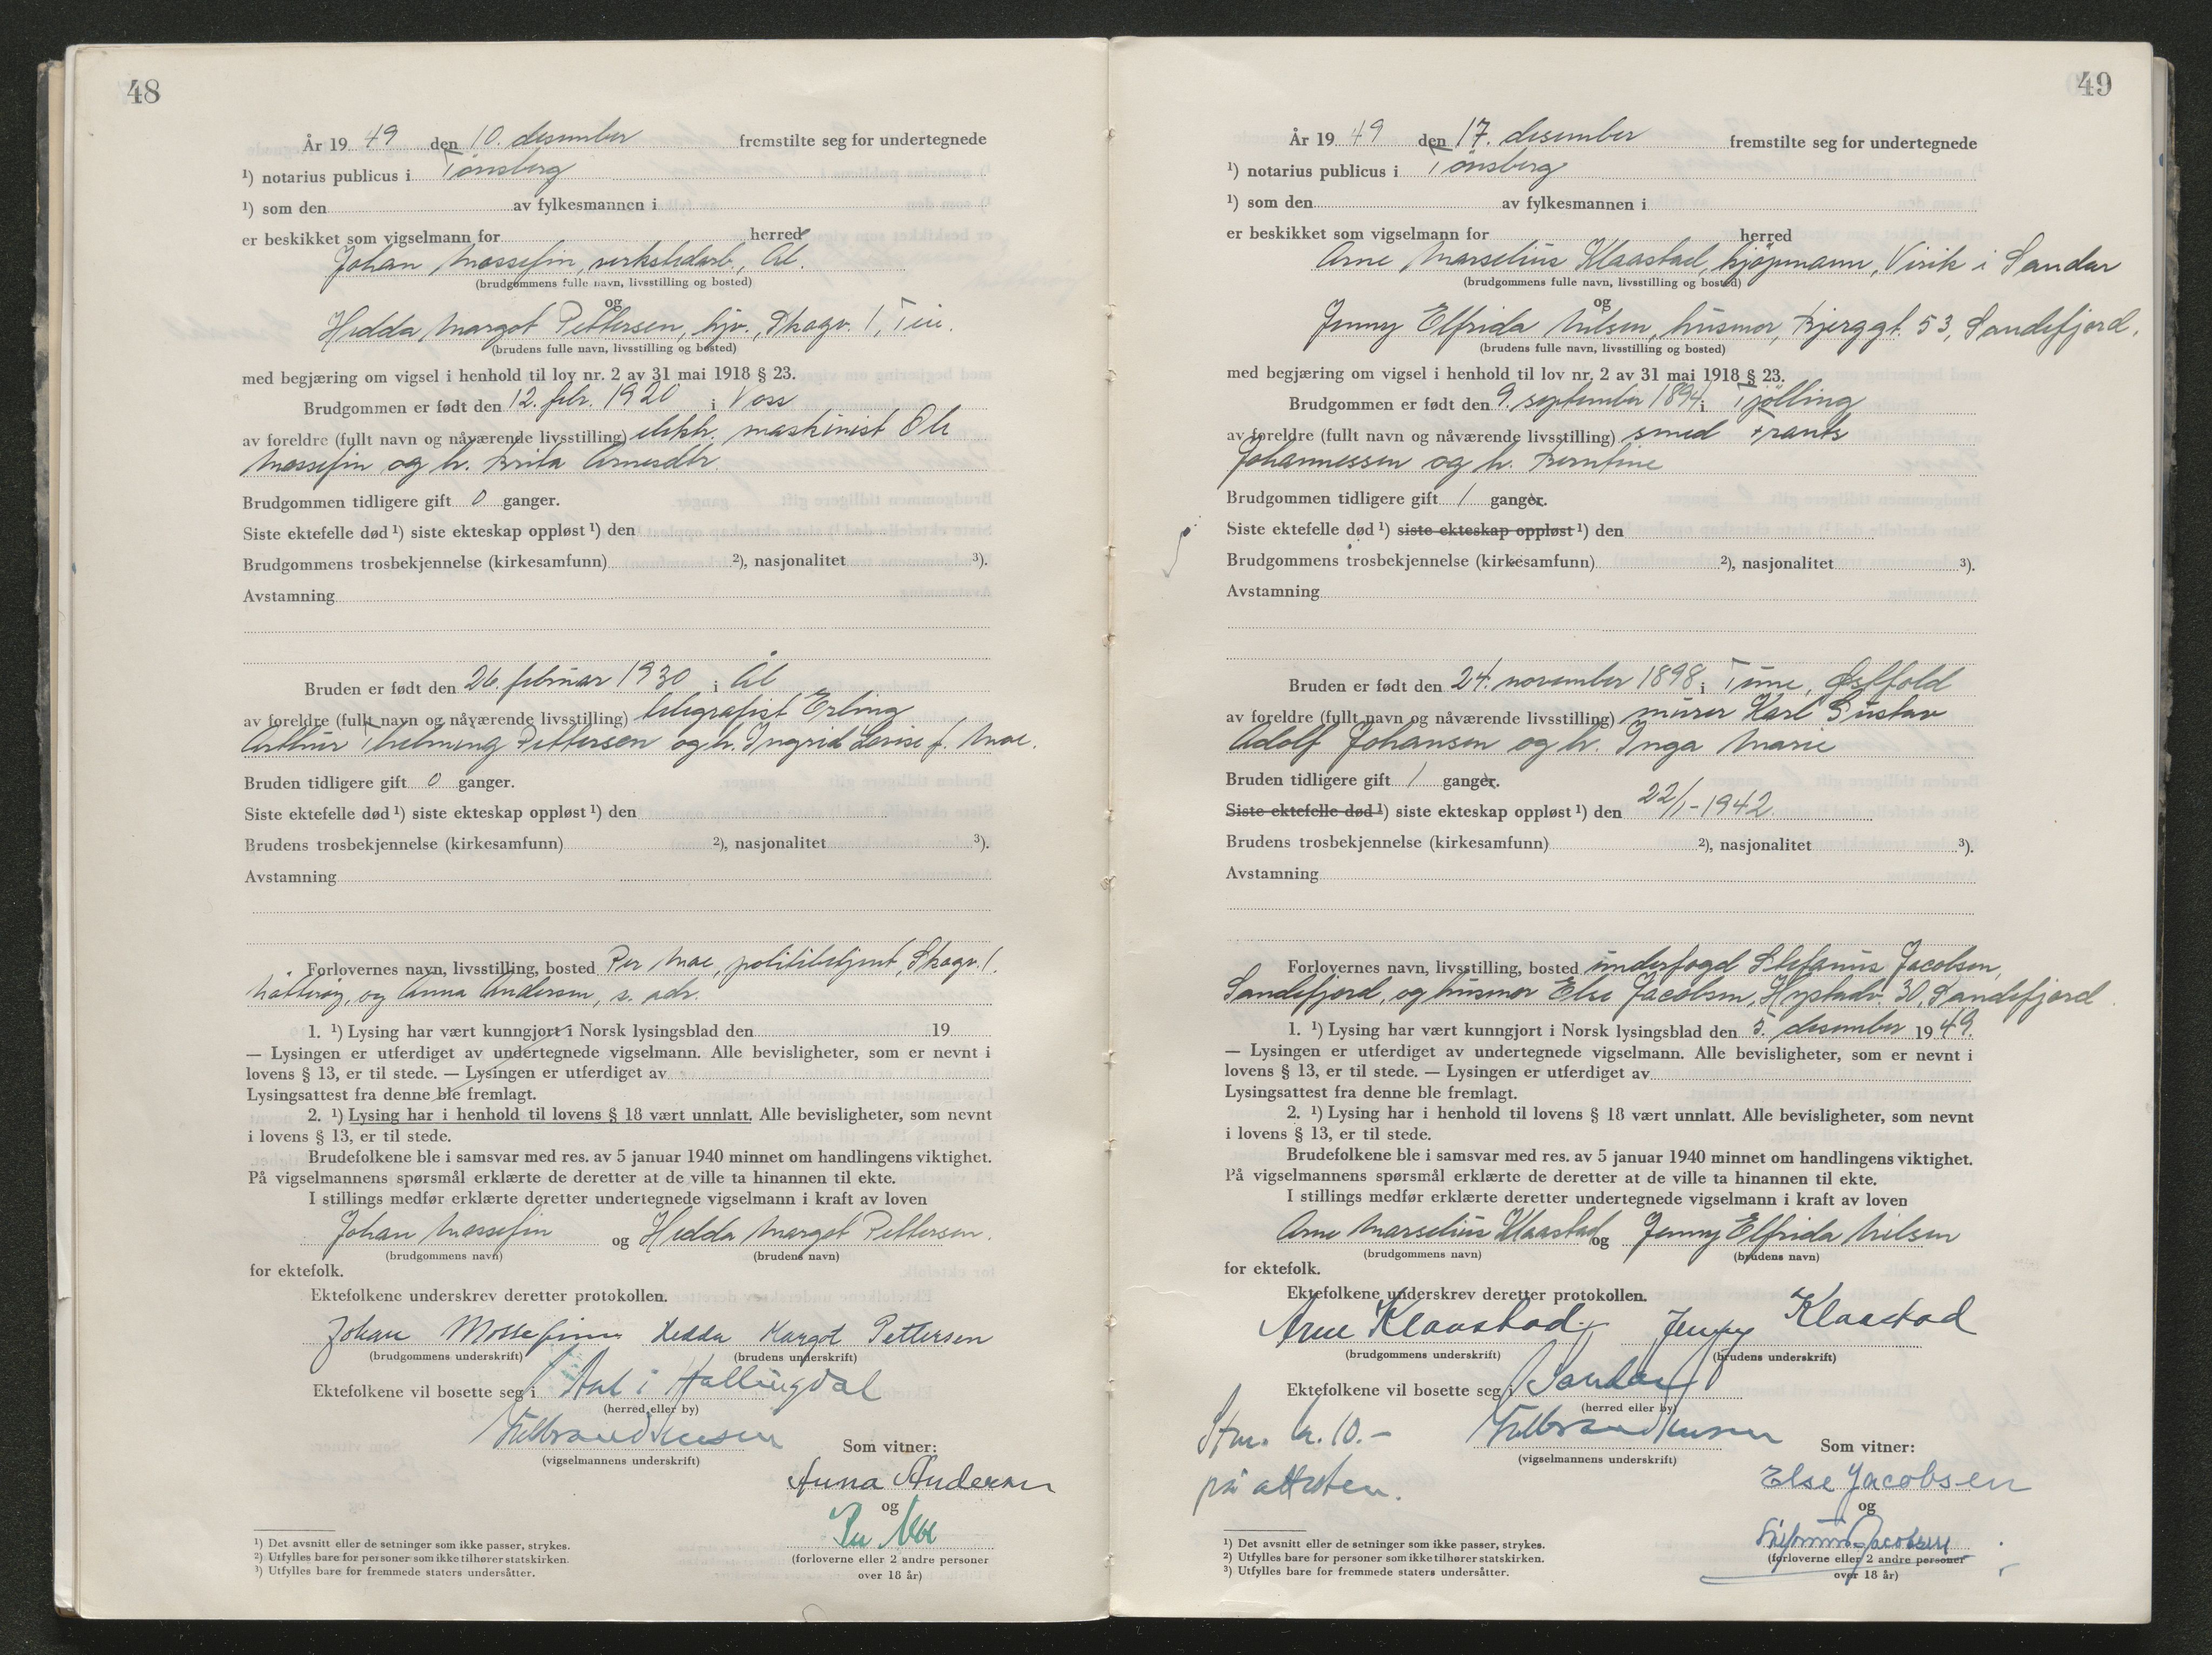 48
År 19 49 den 10. desember fremstilte seg for undertegnede
¹) notarius publicus i Tønsberg
¹) som den av fylkesmannen i
er beskikket som vigselmann for herred
Johan Mossefin, verkstedarb., Ål.
(brudgommens fulle navn, livsstilling og bosted)
og
Hedda Margot Pettersen, hjv., Skogv. 1, Teie.
(brudens fulle navn, livsstilling og bosted)
med begjæring om vigsel i henhold til lov nr. 2 av 31 mai 1918 § 23.
Brudgommen er født den 12. febr. 1920 i Voss
av foreldre (fullt navn og nåværende livsstilling) elektr. maskinist Ole
Mossefin og h. Brita Arnesdtr.
Brudgommen tidligere gift 0 ganger.
Siste ektefelle død ¹) siste ekteskap oppløst ¹) den
Brudgommens trosbekjennelse (kirkesamfunn) ²), nasjonalitet ³).
Avstamning
Bruden er født den 26. februar 1930 i Ål
av foreldre (fullt navn og nåværende livsstilling) telegrafist Erling
Arthur Thelming Pettersen og h. Ingrid Lovise f. Moe.
Bruden tidligere gift 0 ganger.
Siste ektefelle død ¹) siste ekteskap oppløst ¹) den
Brudens trosbekjennelse (kirkesamfunn) ²), nasjonalitet ³).
Avstamning
Forlovernes navn, livsstilling, bosted Per Moe, politibetjent, Skogv. 1.
Nøtterøy, og Anna Andersen, s. adr.
1. ¹) Lysing har vært kunngjort i Norsk lysingsblad den 19
— Lysingen er utferdiget av undertegnede vigselmann. Alle bevisligheter, som er nevnt i
lovens § 13, er til stede. — Lysingen er utferdiget av
Lysingsattest fra denne ble fremlagt.
2. ¹) Lysing har i henhold til lovens § 18 vært unnlatt. Alle bevisligheter, som nevnt
i lovens § 13, er til stede.
Brudefolkene ble i samsvar med res. av 5 januar 1940 minnet om handlingens viktighet.
På vigselmannens spørsmål erklærte de deretter at de ville ta hinannen til ekte.
I stillings medfør erklærte deretter undertegnede vigselmann i kraft av loven
Johan Mossefin og Hedda Margot Pettersen.
(brudgommens navn) (brudens navn)
for ektefolk.
Ektefolkene underskrev deretter protokollen.
Johan Mossefinn Hedda Margot Pettersen
(brudgommens underskrift) (brudens underskrift)
Ektefolkene vil bosette seg i Aal i Hallingdal
(herred eller by)
(vigselmannens underskrift)
Som vitner:
Anna Andersen
og
Per Moe
(forloverne eller 2 andre personer
over 18 år)
¹) Det avsnitt eller de setninger som ikke passer, strykes.
²) Utfylles bare for personer som ikke tilhører statskirken.
³) Utfylles bare for fremmede staters undersåtter.
49
År 19 49 den 17. desember fremstilte seg for undertegnede
¹) notarius publicus i Tønsberg
¹) som den av fylkesmannen i
er beskikket som vigselmann for herred
Arne Marselius Klaastad, kjøpmann, Virik i Sandar
(brudgommens fulle navn, livsstilling og bosted)
og
Jenny Elfrida Nilsen, husmor, Bjerggt. 53, Sandefjord.
(brudens fulle navn, livsstilling og bosted)
med begjæring om vigsel i henhold til lov nr. 2 av 31 mai 1918 § 23.
Brudgommen er født den 9. september 1894 i Tjølling
av foreldre (fullt navn og nåværende livsstilling) smed Frants
Johannessen og h. Berntine
Brudgommen tidligere gift 1 ganger.
Siste ektefelle død ¹) siste ekteskap oppløst ¹) den
Brudgommens trosbekjennelse (kirkesamfunn) ²), nasjonalitet ³).
Avstamning
Bruden er født den 24. november 1898 i Tune, Østfold
av foreldre (fullt navn og nåværende livsstilling) murer Karl Gustav
Adolf Johansen og h. Inga Marie
Bruden tidligere gift 1 ganger.
Siste ektefelle død ¹) siste ekteskap oppløst ¹) den 22/1-1942.
Brudens trosbekjennelse (kirkesamfunn) ²), nasjonalitet ³).
Avstamning
Forlovernes navn, livsstilling, bosted underfogd Stefanus Jacobsen,
Sandefjord, og husmor Else Jacobsen, Hystadv. 30, Sandefjord.
1. ¹) Lysing har vært kunngjort i Norsk lysingsblad den 5. desember 1949.
— Lysingen er utferdiget av undertegnede vigselmann. Alle bevisligheter, som er nevnt i
lovens § 13, er til stede. — Lysingen er utferdiget av
Lysingsattest fra denne ble fremlagt.
2. ¹) Lysing har i henhold til lovens § 18 vært unnlatt. Alle bevisligheter, som nevnt
i lovens § 13, er til stede.
Brudefolkene ble i samsvar med res. av 5 januar 1940 minnet om handlingens viktighet.
På vigselmannens spørsmål erklærte de deretter at de ville ta hinannen til ekte.
I stillings medfør erklærte deretter undertegnede vigselmann i kraft av loven
Arne Marselius Klaastad og Jenny Elfrida Nilsen
(brudgommens navn) (brudens navn)
for ektefolk.
Ektefolkene underskrev deretter protokollen.
Arne Klaastad Jenny Klaastad
(brudgommens underskrift) (brudens underskrift)
Ektefolkene vil bosette seg i Sandar
(herred eller by)
Stm. kr. 10.-
på attesten.
(vigselmannens underskrift)
Som vitner:
Else Jacobsen
og
Stefanus Jacobsen
(forloverne eller 2 andre personer
over 18 år)
¹) Det avsnitt eller de setninger som ikke passer, strykes.
²) Utfylles bare for personer som ikke tilhører statskirken.
³) Utfylles bare for fremmede staters undersåtter.